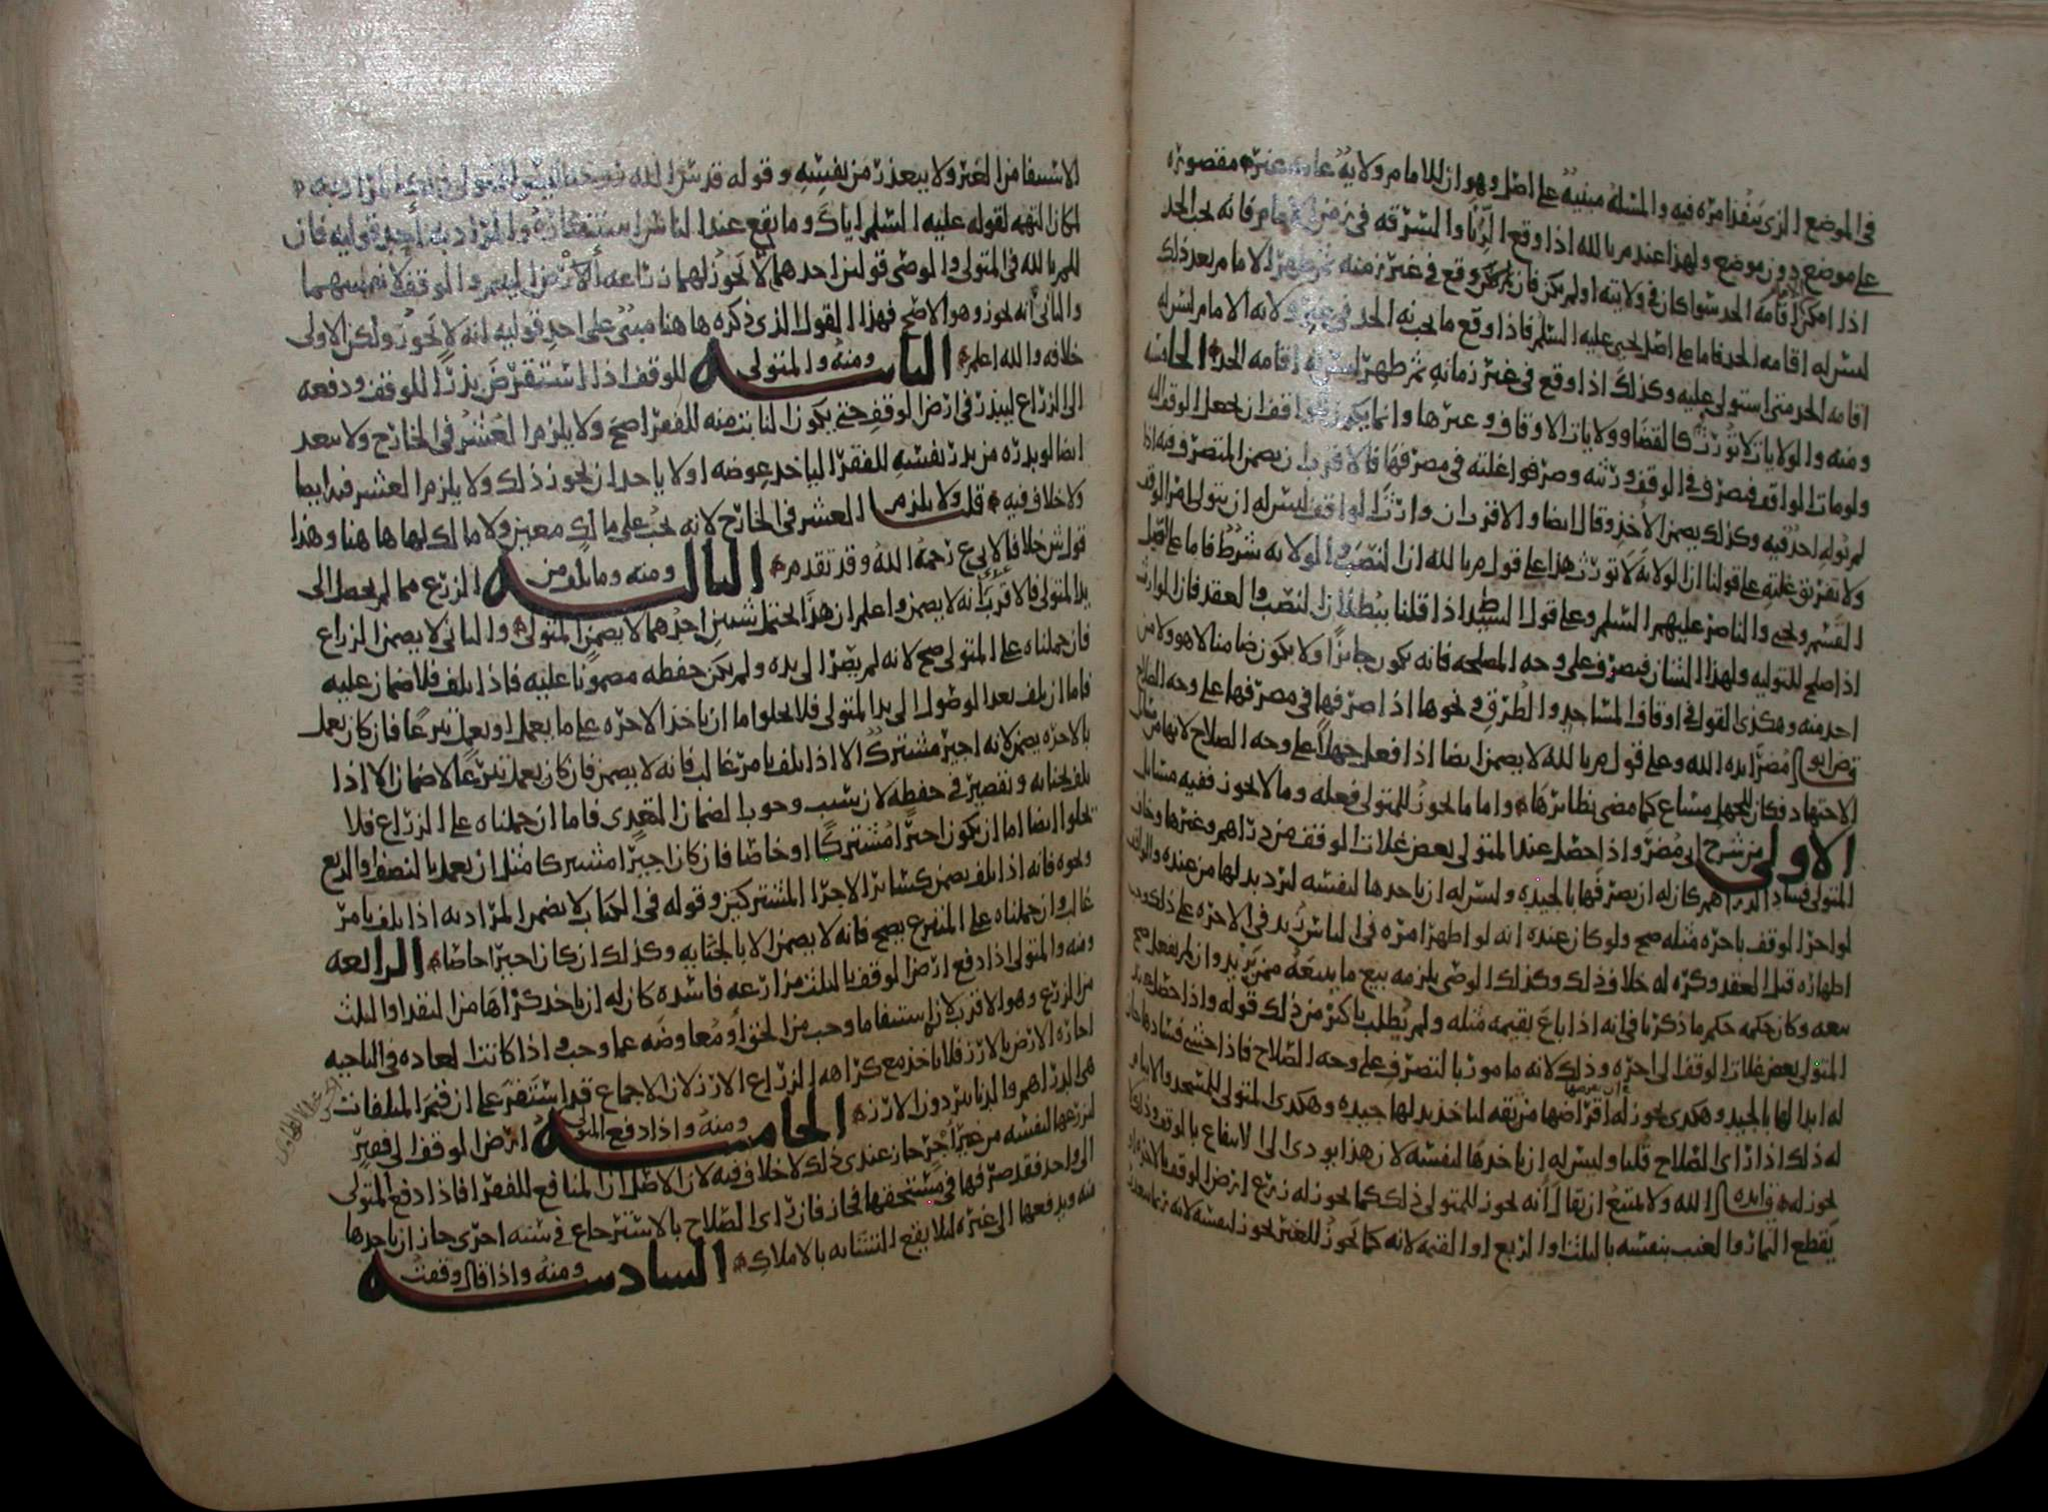 في الموضع الذي ينفذ امره فيه والمسله مبنيه على اصل وهو ان للامام ولايه عامه غير مقصوره
على موضع دون موضع ولهذا عند م بالله اذا وقع الزنا والسرقه في زمن الامام فانه يجب الحد
اذا امكن اقامه الحد سوا كان في ولايته او لم يكن فان وقع في غير زمنه ثم ظهر الامام بعد ذلك
ليس له اقامه الحد فاما على اصل يحيى عليه السلم فاذا وقع ما يجب فيه الحد في غير ولايه الامام ليس له
اقامه الحد متى استولى عليه وكذلك اذا وقع في غير زمانه ثم ظهر ليس له اقامه الحد الخامسه
ومنه والولايات لا تورث كالقضا وولايات الاوقاف وغيرها وانما يكون للواقف ان يجعل الوقف اليه
ولو مات الواقف فتصرف في الوقف ورثته وصرفوا غلته في مصرفها فالاقرب ان يضمن المتصرف فيه اذا
لم يوله احد فيه وكذلك يضمن الاخذ وقال ايضا والاقرب ان وارث الواقف ليس له ان يتولى امر الوقف
ولا تفريق غلته على قولنا ان الولايه لا تورث هذا على قول م بالله ان النصب والولايه شرط فاما على قول
القسم ويحيى والناصر عليهم السلم وعلى قول السيد ط اذا قلنا ببطلان النصب والعقد فان الوارث
اذا صلح للتوليه ولهذا الشان فيصرف على وجه المصلحه فانه يكون جايزا ولا يكون ضامنا لا هو ولا من
احد منه وهكذى القول في اوقاف المساجد والطرق ونحوها اذا صرفها في مصرفها على وجه الصلاح
قال ابو مضر ايده الله وعلى قول م بالله لا يضمن ايضا اذا فعل جهلا على وجه الصلاح لانها من مسائل
الاجتهاد فكان للجهل مساغ كما مضى نظائرها واما ما يجوز للمتولى فعله وما لا يجوز ففيه مسايل
الاولى من شرح ابي مضر واذا حصل عند المتولى بعض غلات الوقف من دراهم وغيرها وخاف
المتولى فساد الدراهم كان له ان يصرفها بالجيده وليس له ان ياخذها لنفسه ليرد بدلها من عنده والواقف
لو اجر الوقف باجره مثله صح ولو كان عنده انه لو اظهر امره في الناس زيد في الاجره على ذلك وجب
اظهاره قبل العقد وكره له خلاف ذلك وكذلك الوصى يلزمه بيع ما يبيعه ممن يزيد وان لم يفعل صح
بيعه وكان حكمه حكم ما ذكرنا في انه اذا باع بقيمه مثله ولم يطلب باكثر من ذلك قوله واذا حصل عند
المتولى بعض غلات الوقف الى اخره وذلك لانه مامور بالتصرف على وجه الصلاح فاذا خشي فسادها جاز
له ابدالها بالجيد وهكذى يجوز له اقراضها من ثقه لناخذ بدلها جيده وهكذى المتولى للمسجد والايتام
له ذلك اذا راى الصلاح قلنا وليس له ان ياخذها لنفسه لان هذا يودي الى الانتفاع بالوقف وذلك لا
يجوز له قال ايده الله ولا يمتنع ان يقال انه يجوز للمتولى ذلك كما يجوز له زرع ارض الوقف بالاجره وان
يقطع الثمار والعنب بنفسه بالثلث او الربع او القيمه لانه كما يجوز للغير يجوز لنفسه لانه ربما يتعذر
الاستيفا من الغير ولا يتعذر من نفسه وقوله قدس الله روحه
لمكان التهمه لقوله عليه السلم اياك وما يقع عند الناس استنكاره والمراد به احد قوليه فان
للم بالله في المتولى والوصى قولين احدهما لا يجوز لهما زراعه الارض لليتيم والوقف لانفسهما
والثاني انه يجوز وهو الاصح فهذا القول الذي ذكره ها هنا مبني على احد قوليه انه لا يجوز ولكن الاولى
خلافه والله اعلم الثانيه ومنه والمتولى للوقف اذا استقرض بذرا للوقف ودفعه
الى الزراع ليبذر في ارض الوقف حتى يكون النابت منه للفقرا صح ولا يلزم العشر في الخارج ولا يبعد
ايضا لو بذره من بذر نفسه للفقرا لياخذ عوضه او لا ياخذ ان يجوز ذلك ولا يلزم العشر فيه ايضا
ولا خلاف فيه قلت ولا يلزم العشر في الخارج لانه يجب على مالك معين ولا مالك لها ها هنا وهذا
قول ش خلافا لابي ع رحمه الله وقد تقدم الثالثه ومنه وما تلف من الزرع مما لم يحصل الى
يد المتولى فالاقرب انه لا يضمن واعلم ان هذا يحتمل شيين احدهما لا يضمن المتولى والثاني لا يضمن الزراع
فان حملناه على المتولى صح لانه لم يصر الى يده ولم يكن حفظه مضمونا عليه فاذا تلف فلا ضمان عليه
فاما ان تلف بعد الوصول الى يد المتولى فلا يخلوا اما ان ياخذ الاجره على ما يعمل او يعمل تبرعا فان كان يعمل
بالاجره يضمن لانه اجير مشترك الا اذا تلف بامر غالب فانه لا يضمن فان كان يعمل تبرعا لا ضمان الا اذا
تلف بجنايه وتقصير في حفظه لان سبب وجوب الضمان التعدى فاما ان حملناه على الزراع فلا
يخلوا ايضا اما ان يكون اجيرا مشتركا او خاصا فان كان اجيرا مشتركا مثل ان يعمل بالنصف والربع
ونحوه فانه اذا تلف يضمن كسائر الاجرا المشتركين وقوله في الكتاب لا يضمن المراد به اذا تلف بامر
غالب وان حملناه على المتبرع يصح فانه لا يضمن الا بالجنايه وكذلك ان كان اجيرا خاصا الرابعه
ومنه والمتولى اذا دفع ارض الوقف بالثلث مزارعه فاسده كان له ان ياخذ كراها من النقد او الثلث
من الزرع وهو الاقرب لان استيفا ما وجب من الحق او معاوضه عما وجب واذا كانت العاده في الناحيه
اجاره الارض بالارز فلا ياخذ مع كراهه الزراع الارز لان الاجماع قد استقر على ان قيم المتلفات
هي الدراهم والدنانير دون الارز الخامسه ومنه واذا دفع المتولى ارض الوقف الى فقير
ليزرعها لنفسه من غير اجر جاز عندي ذلك لا خلاف فيه لان الاصل ان المنافع للفقرا فاذا دفع المتولى
الى واحد فقد صرفها في مستحقها فجاز فان راى الصلاح بالاسترجاع في سنه اخرى جاز ان ياخذها
منه ويدفعها الى غيره ليلا يقع التشابه بالاملاك السادسه ومنه واذا قال وقفت